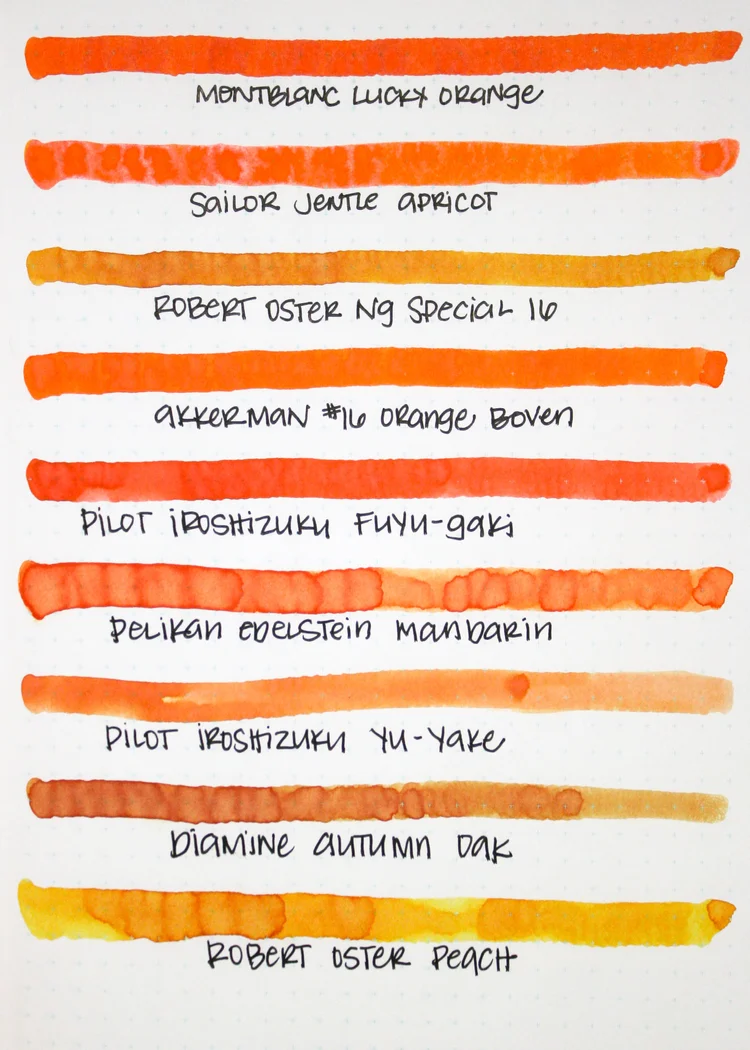 MONTBLANC LUCKY ORANGE
SAILOR JENTLE APRICOT
ROBERT OSTER NG SPECIAL 16
AKKERMAN #16 ORANGE BOVEN
PILOT IROSHIZUKU FUYU-GAKI
PELIKAN EDELSTEIN MANDARIN
PILOT IROSHIZUKU YU-YAKE
DIAMINE AUTUMN OAK
ROBERT OSTER PEACH